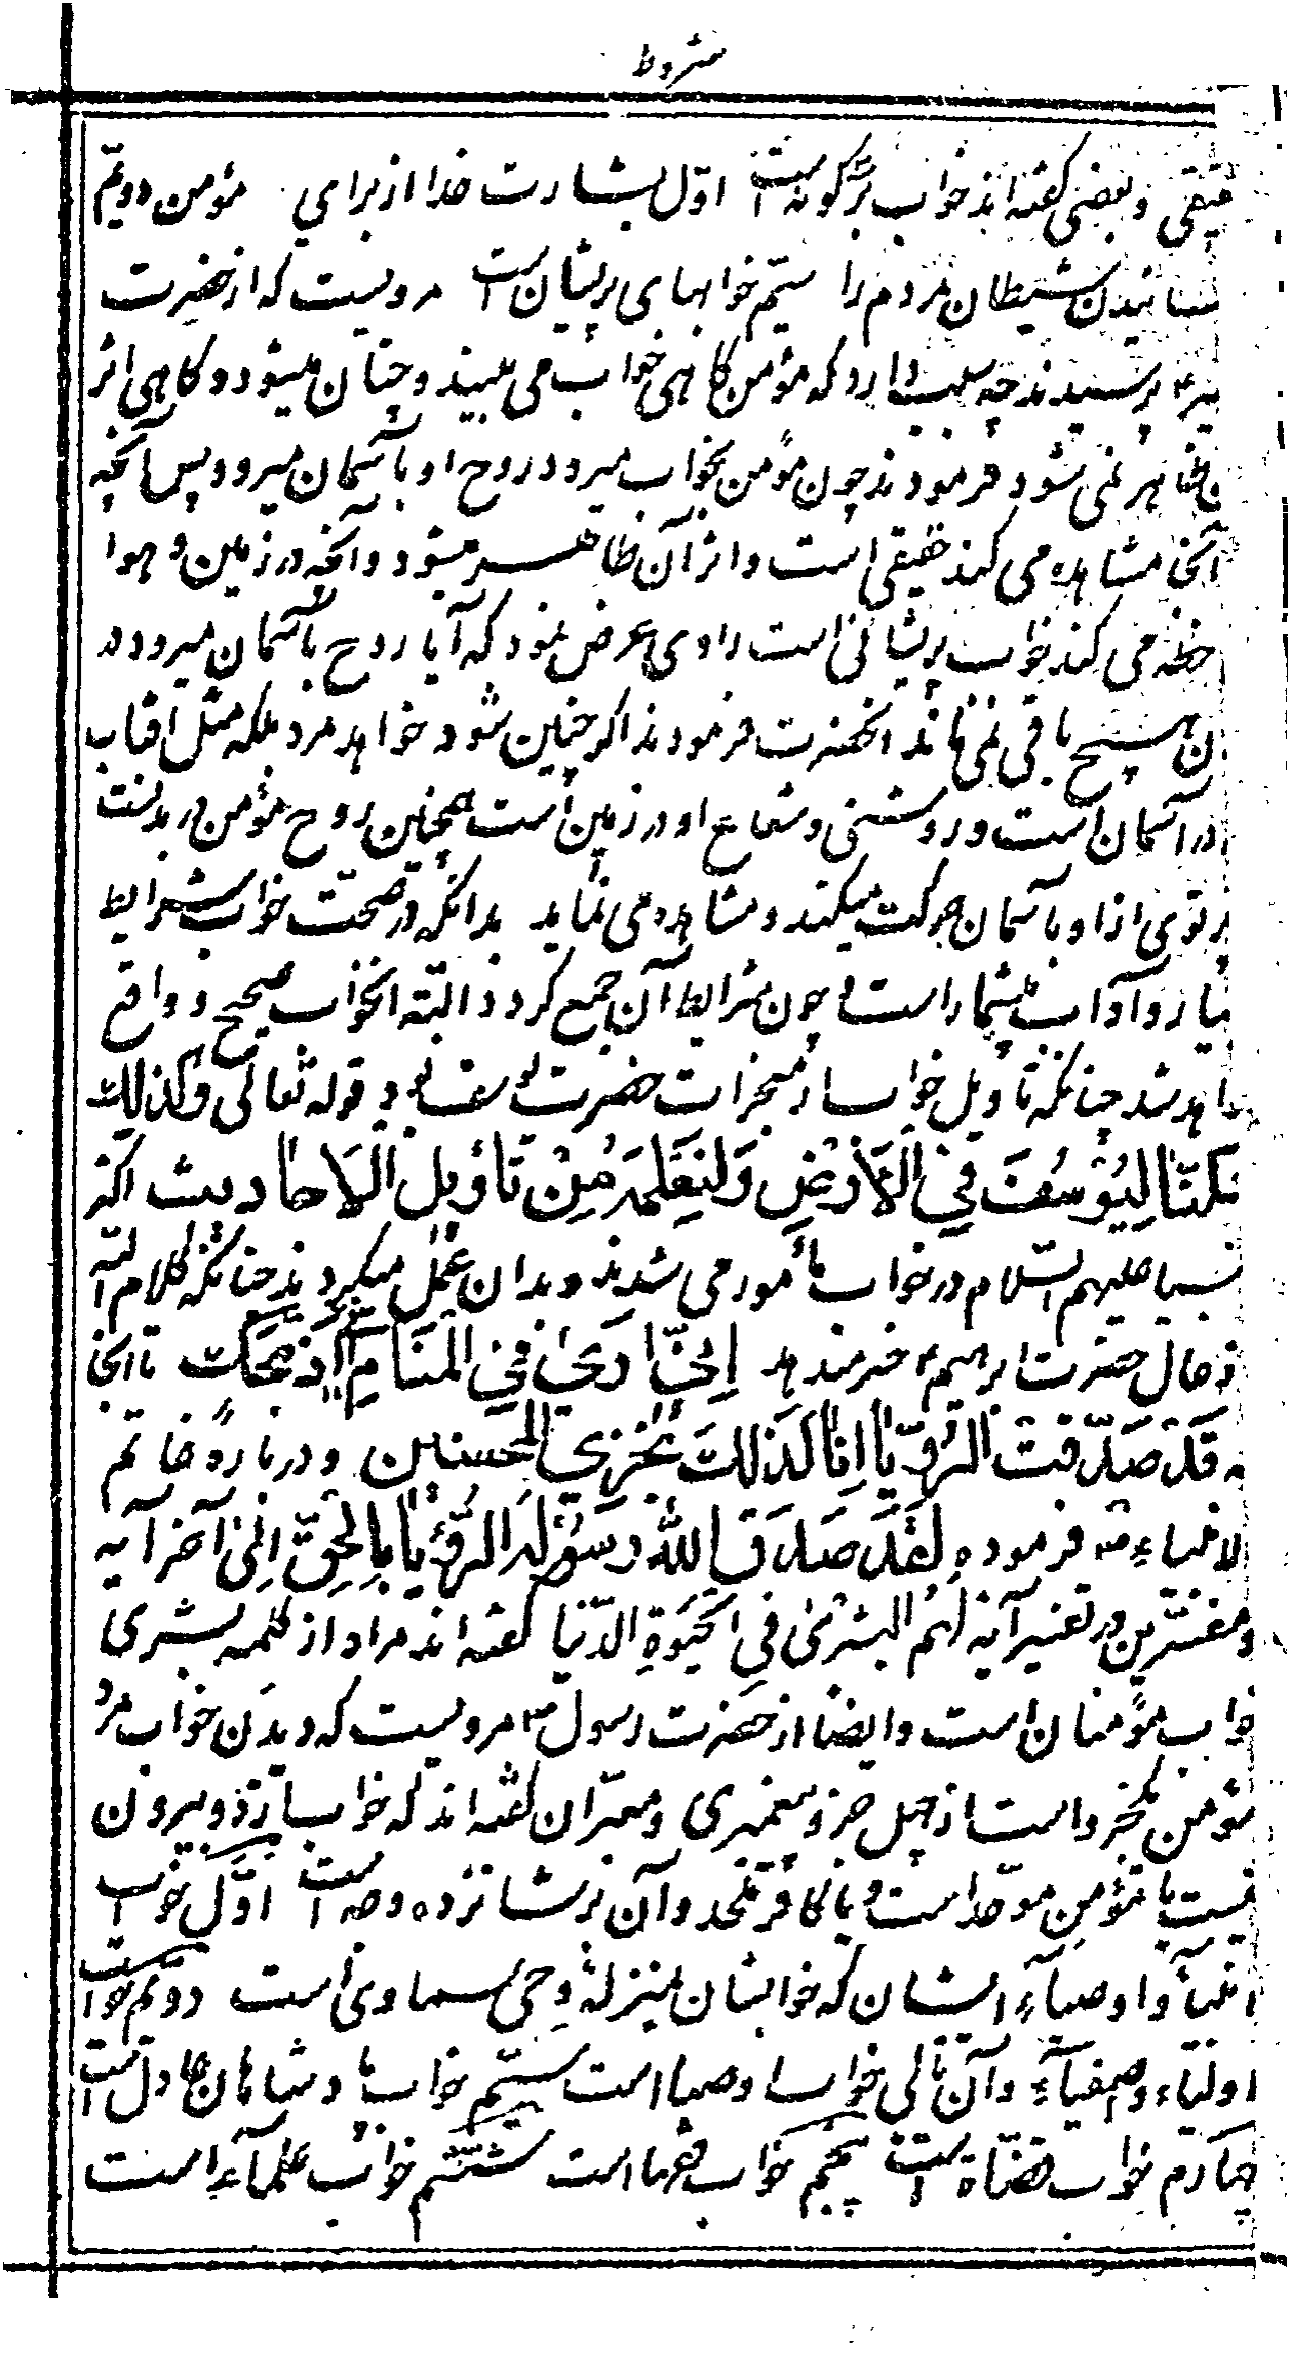 شروط
حقیقی و بعضی گفته‌اند خواب بر سه گونه است اوّل بشارت خدا از برای مؤمن دویّم
شیطان مردم را سیّم خوابهای پریشان است مرویست که از حضرت
پرسیدند چه سبب دارد که مؤمن گاهی خواب می بیند و چنان میشود و گاهی اثر
ظاهر نمی شود فرمودند چون مؤمن بخواب میرود روح او بآسمان میرود پس آنچه
آنجا مشاهده می کند حقیقی است و اثر آن ظاهر میشود و آنچه در زمین و هوا
می کند خواب پریشانی است راوی عرض نمود که آیا روح بآسمان میرود در
هیچ باقی نمی ماند آنحضرت فرمودند اگر چنین شود خواهد مرد بلکه مثل آفتاب
در آسمان است و روشنی و شعاع او در زمین است همچنین روح مؤمن در بدنست
پرتوی از او بآسمان حرکت میکند و مشاهده می نماید بدانکه در صحّت خواب شرایط
و آداب بیشمار است و چون شرایط آن جمع گردد البتّه آنخواب صحیح و واقع
شد چنانکه تأویل خواب از معجزات حضرت یوسف بود قوله تعالی وَکَذلِكَ
مَکَّنّا لِیُوسُفَ فِی الْاَرْضِ وَلِنُعَلِّمَهُ مِنْ تَأویلِ الْاَحادیث اکثر
علیهم السّلام در خواب مأمور می شدند و بدان عمل میکردند چنانکه کلام اللّه
از حال حضرت ابرهیم ع خبر میدهد اِنّی اَری فِی الْمَنامِ اَنّی اَذْبَحُكَ تا آنجا
قَدْ صَدَّقْتَ الرُّؤیا اِنّا کَذلِكَ نَجْزِی الْمُحْسِنین و در باره خاتم
الانبیاء ص فرموده لَقَدْ صَدَقَ اللهُ رَسُولَهُ الرُّؤیا بِالْحَقِّ اِلی آخر آیه
و مفسّرین در تفسیر آیه لَهُمُ الْبُشْری فِی الْحَیوةِ الدُّنیا گفته اند مراد از کلمه بشری
خواب مؤمنان است و ایضا از حضرت رسول ص مرویست که دیدن خواب مرد
مؤمن یکجزو است از چهل جزو پیغمبری و معبّران گفته اند که خواب از دو بیرون
نیست یا مؤمن موحّد است و یا کافر ملحد و آن بر شانزده وجه است اوّل خواب
انبیاء و اوصیاء ایشان که خوابشان بمنزلهٔ وحی سماوی است دویّم خواب
اولیاء و اصفیاء و آن تالی خواب اوصیا است سیّم خواب پادشاهان عادل است
چهارم خواب قضاة است پنجم خواب فقها است ششم خواب علماء است